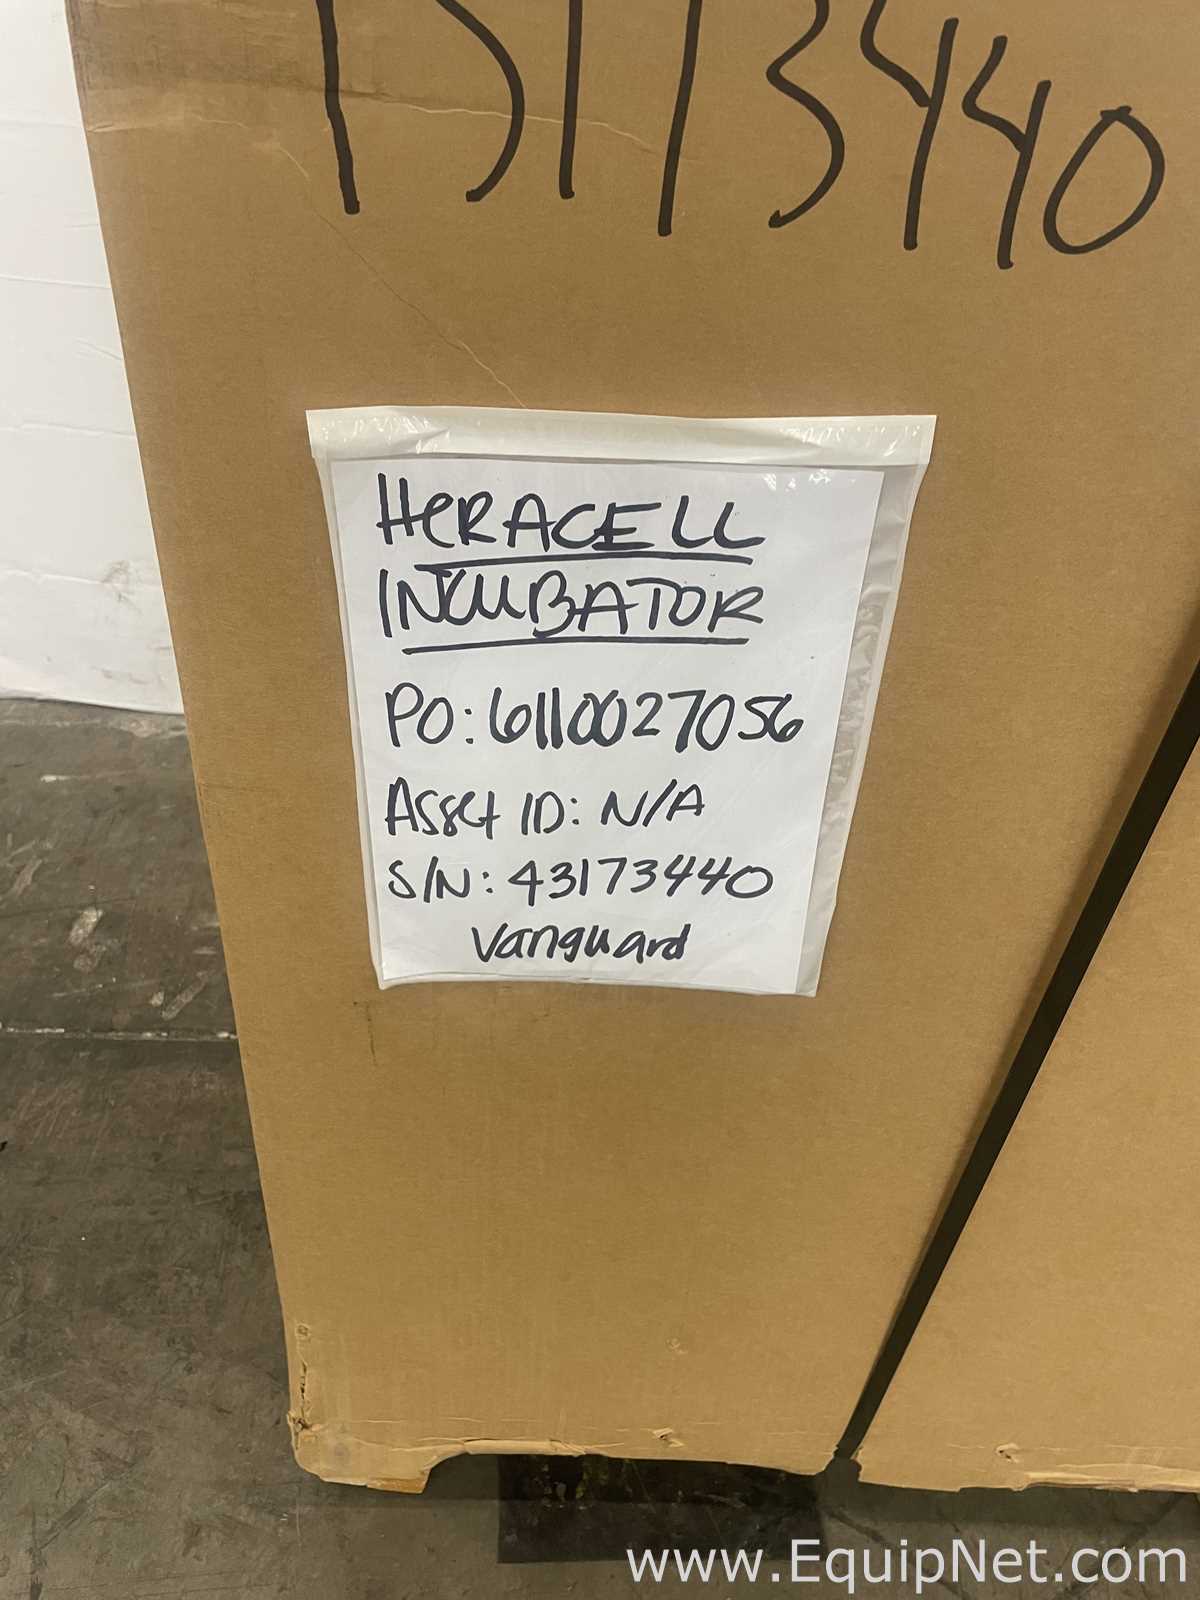 43173440
HeRACELL
INCUBATOR
PO: 6110027056
Asset ID: N/A
S/N: 43173440
Vanguard
www.EquipNet.com